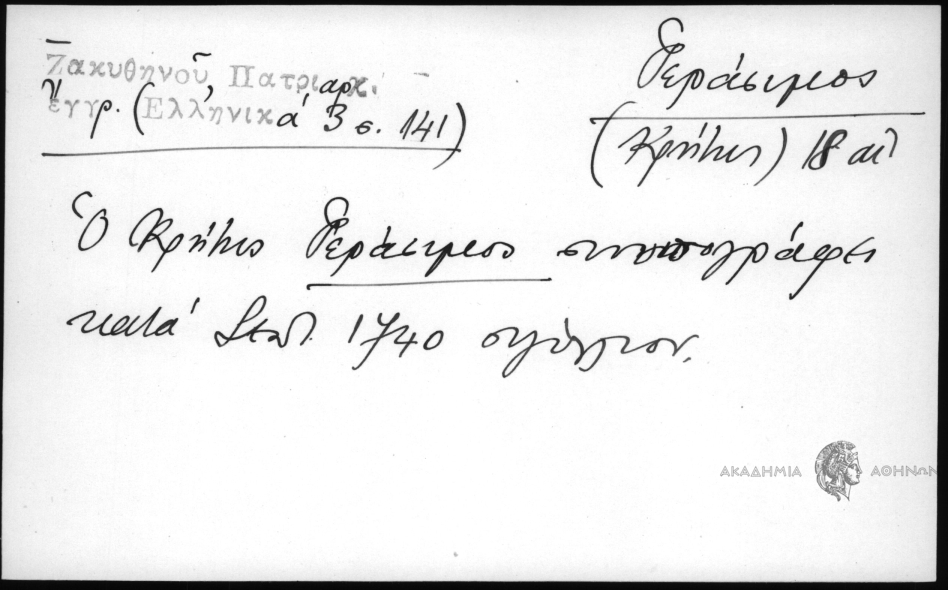 Ζακυθηνοῦ, Πατριαρχ.
ἔγγρ. (Ἑλληνικά 3 σ. 141)
Γεράσιμος
(Κρήτης) 18 αἰ
Ὁ Κρήτης Γεράσιμος συνυπογράφει
κατά Σεπτ. 1740 σιγίλλιον.
ΑΚΑΔΗΜΙΑ ΑΘΗΝΩΝ